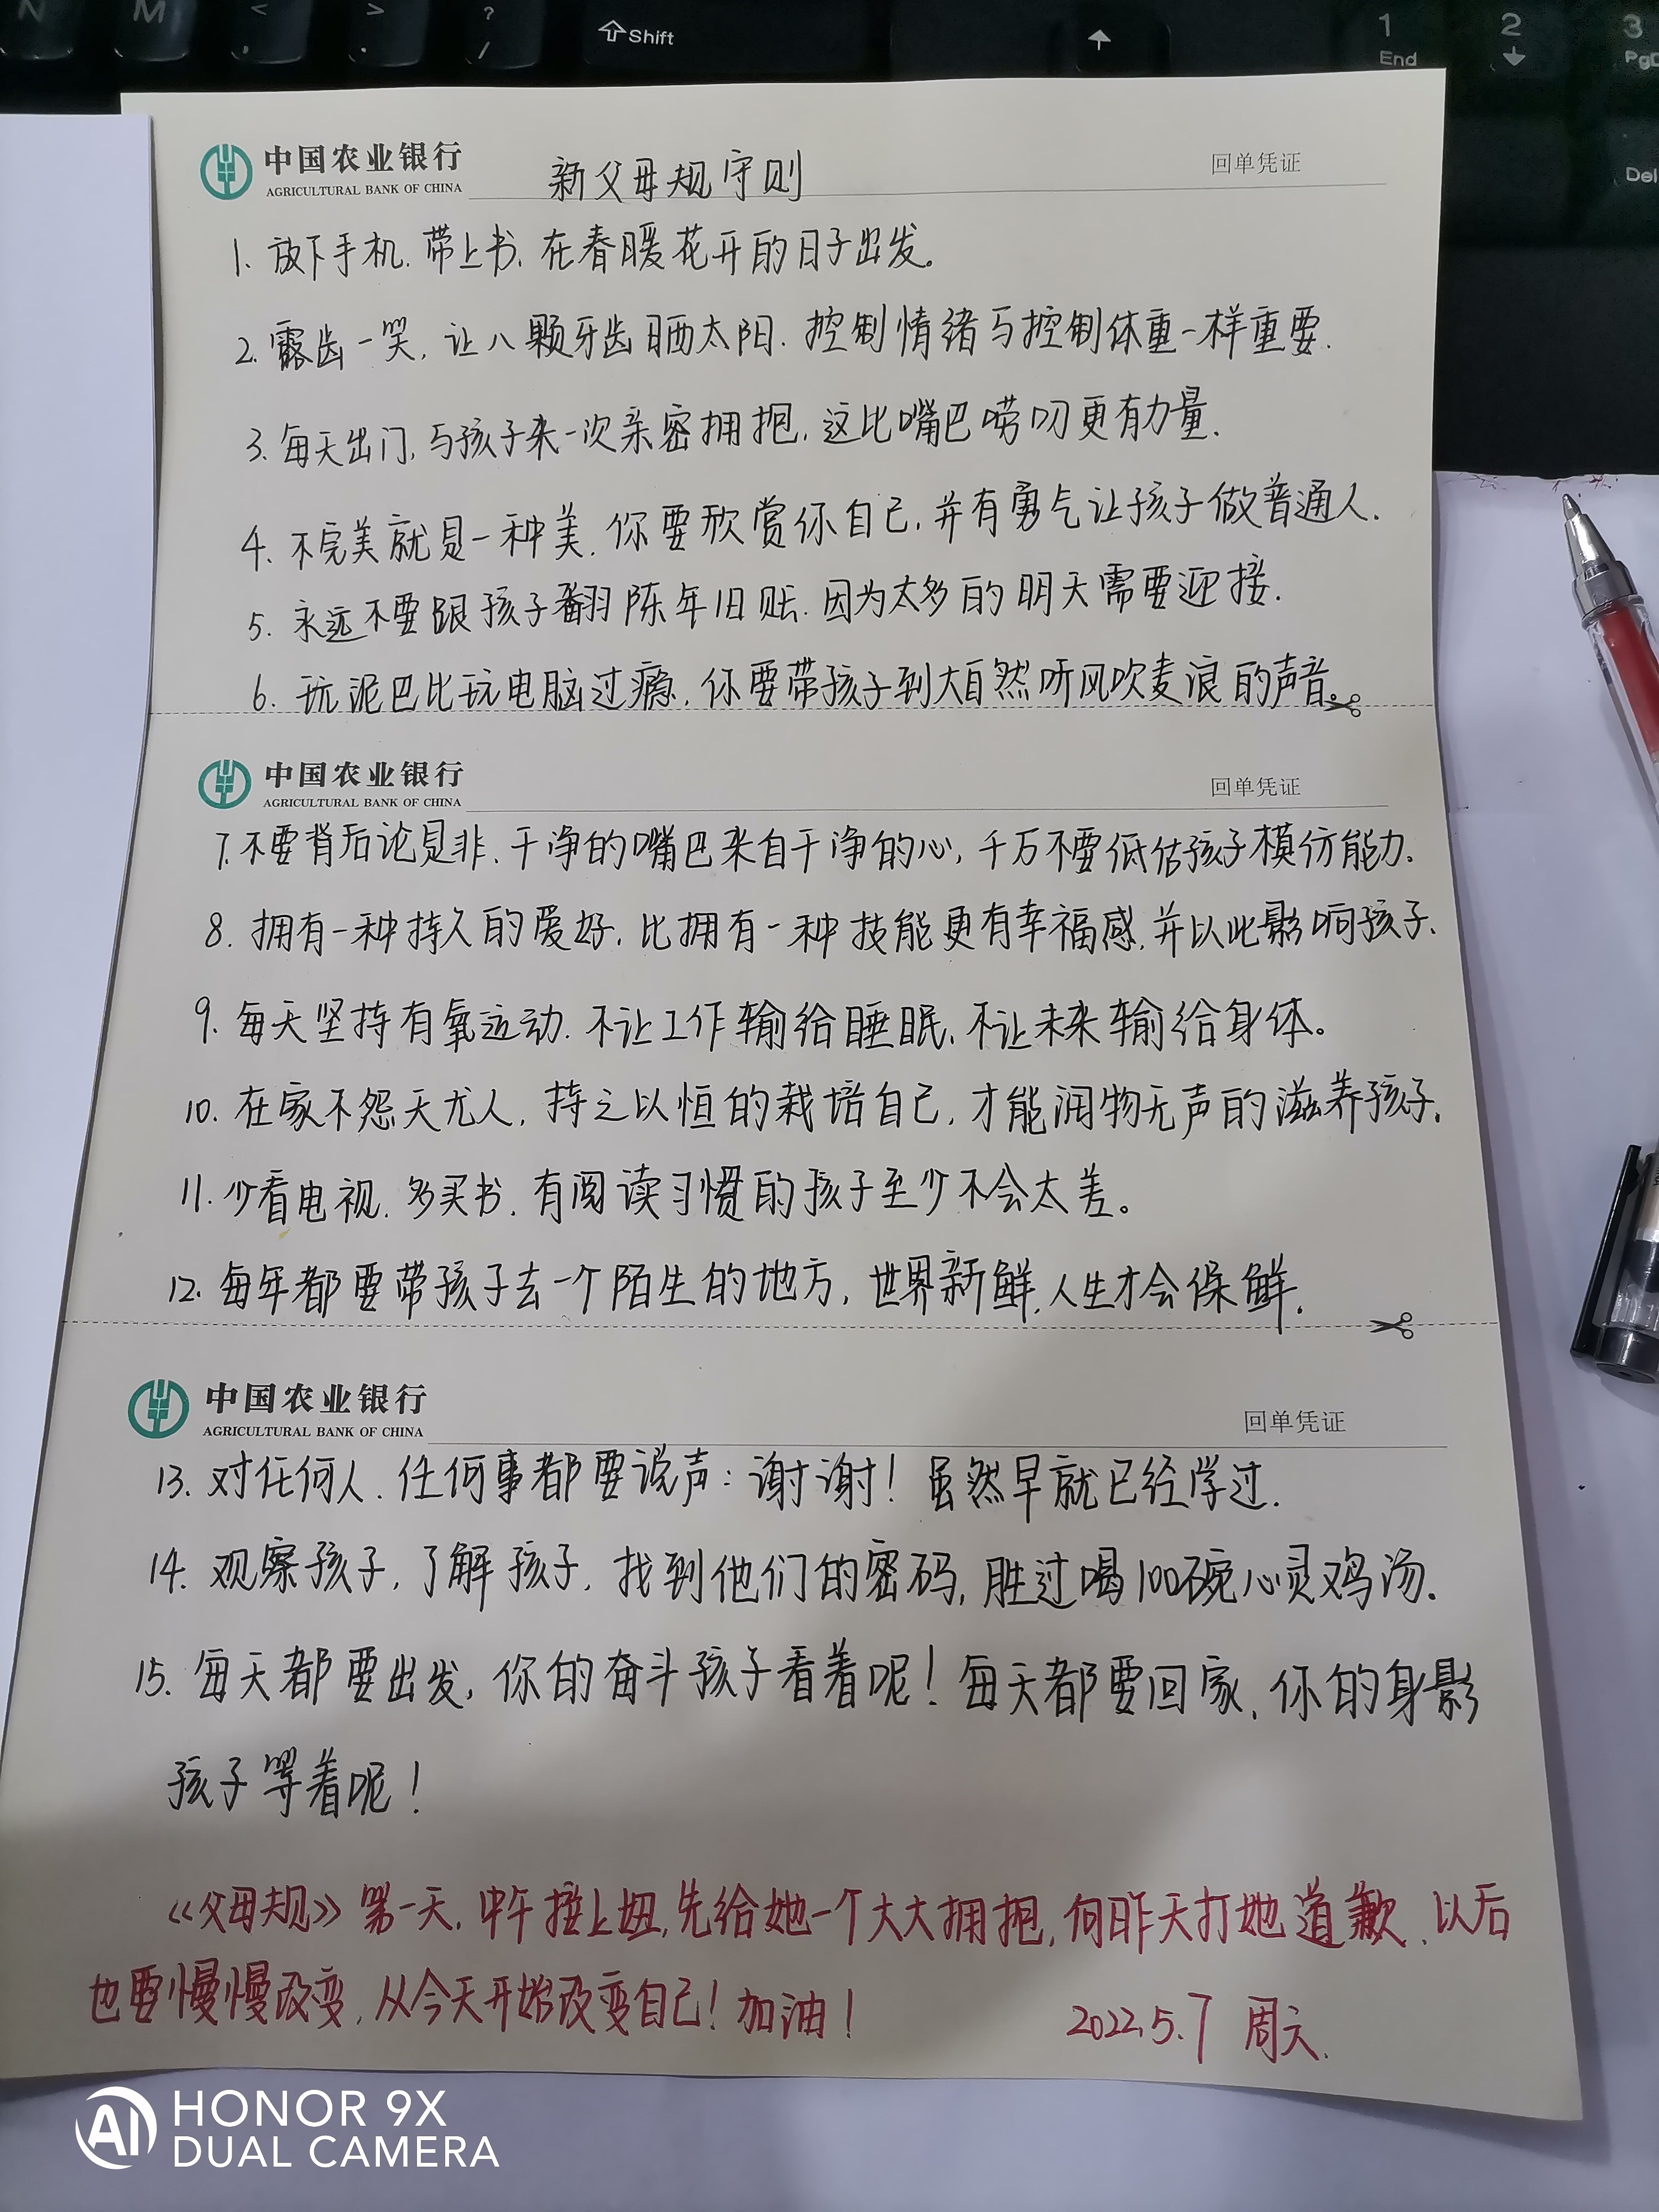 N M < , > . ? / Shift 1 End 2 3 PgD
Del
中国农业银行
AGRICULTURAL BANK OF CHINA
新父母规守则
回单凭证
1. 放下手机.带上书.在春暖花开的日子出发。
2. 露齿一笑,让八颗牙齿晒太阳.控制情绪与控制体重一样重要.
3. 每天出门,与孩子来一次亲密拥抱,这比嘴巴唠叨更有力量.
4. 不完美就是一种美.你要欣赏你自己,并有勇气让孩子做普通人.
5. 永远不要跟孩子翻陈年旧账.因为太多的明天需要迎接.
6. 玩泥巴比玩电脑过瘾,你要带孩子到大自然听风吹麦浪的声音。
中国农业银行
AGRICULTURAL BANK OF CHINA
回单凭证
7.不要背后论是非、干净的嘴巴来自干净的心,千万不要低估孩子模仿能力.
8. 拥有一种持久的爱好,比拥有一种技能更有幸福感,并以此影响孩子.
9. 每天坚持有氧运动.不让工作输给睡眠、不让未来输给身体。
10. 在家不怨天尤人,持之以恒的栽培自己,才能润物无声的滋养孩子.
11. 少看电视.多买书.有阅读习惯的孩子至少不会太差。
12. 每年都要带孩子去一个陌生的地方,世界新鲜,人生才会保鲜.
中国农业银行
AGRICULTURAL BANK OF CHINA
回单凭证
13. 对任何人.任何事都要说声:谢谢!虽然早就已经学过.
14. 观察孩子,了解孩子,找到他们的密码,胜过喝100碗心灵鸡汤.
15. 每天都要出发,你的奋斗孩子看着呢!每天都要回家,你的身影
孩子等着呢!
《父母规》第一天,中午接上妞,先给她一个大大拥抱,向昨天打她道歉.以后
也要慢慢改变,从今天开始改变自己!加油!
2022.5.7 周六.
AI HONOR 9X
DUAL CAMERA